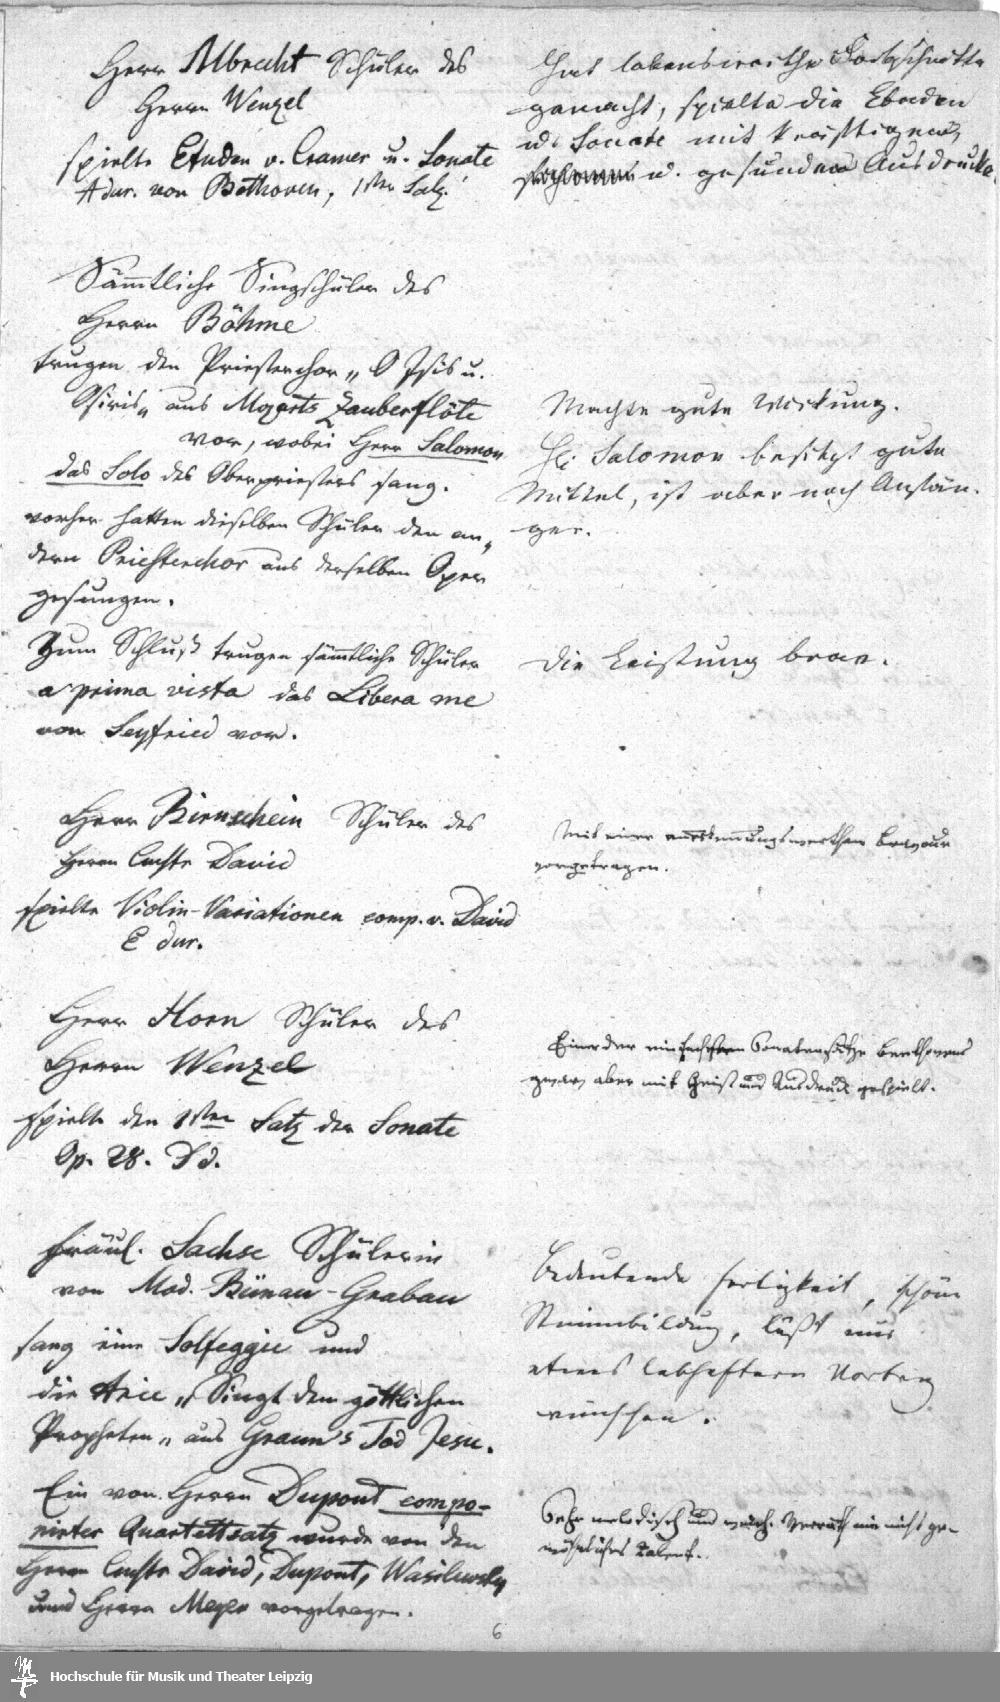 Herr Albrecht Schüler des
Herrn Wenzel
spielte Etuden v. Cramer u. Sonate
A dur. von Bethoven, 1ster Satz.
Hat lobenswerthe Fortschritte
gemacht, spielte die Etuden
u. Sonate mit kräftigem
u. gesunden Ausdrucke.
Sämmtliche Singschüler des
Herrn Böhme
trugen den Priesterchor „O Isis u.
Osiris„ aus Mozarts Zauberflöte
vor, wobei Herr Salomon
das Solo des Oberpriesters sang.
vorher hatten dieselben Schüler den an„
dern Priesterchor aus derselben Oper
gesungen.
Machte gute Wirkung.
Hr. Salomon besitzt gute
Mittel, ist aber noch Anfän-
ger.
Zum Schluß trugen sämmtliche Schüler
a prima vista das Libera me
von Seyfried vor.
Die Leistung brav.
Herr Bienschein Schüler des
Herrn Concertm David
spielte Violin-Variationen comp. v. David
E dur.
Mit einer anerkennungswerthen Bravour
vorgetragen.
Herr Horn Schüler des
Herrn Wenzel
spielte den 1sten Satz der Sonate
Op. 28. D d.
Einer der einfachsten Sonatensätze Beethovens
zwar, aber mit Geist und Ausdruck gespielt.
Fräul. Sachse Schülerin
von Mad. Bünau-Grabau
sang eine Solfeggie und
die Arie „Singt dem göttlichen
Propheten„ aus Graun's Tod Jesu.
Bedeutende Fertigkeit, schöne
Stimmbildung, läßt nur
etwas lebhaftern Vortrag
wünschen.
Ein von Herrn Dupont compo-
nirter Quartettsatz wurde von den
Herrn Concertm David, Dupont, Wasilewsky
und Herrn Meyer vorgetragen.
Sehr melodisch und Verräth ein nicht ge-
wöhnliches Talent.
6
Hochschule für Musik und Theater Leipzig